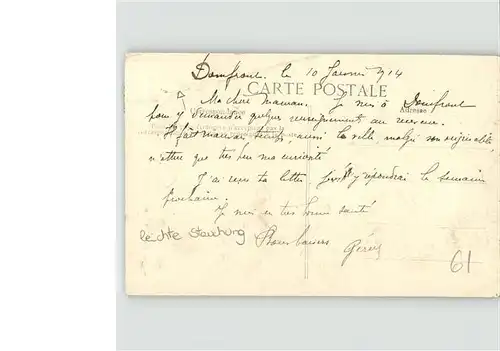 Domfront le 10 Janvier 1914
CARTE POSTALE
Ma chère Maman. Je suis à Domfront
Adresse
pour y demander quelque renseignement au receveur.
Il fait mauvais temps, aussi la ville malgré son originalité
n'attire que très peu ma curiosité
J'ai reçu ta lettre j'y répondrai la semaine
prochaine.
Je suis en très bonne santé
leichte Stauchung
Bons baisers
61